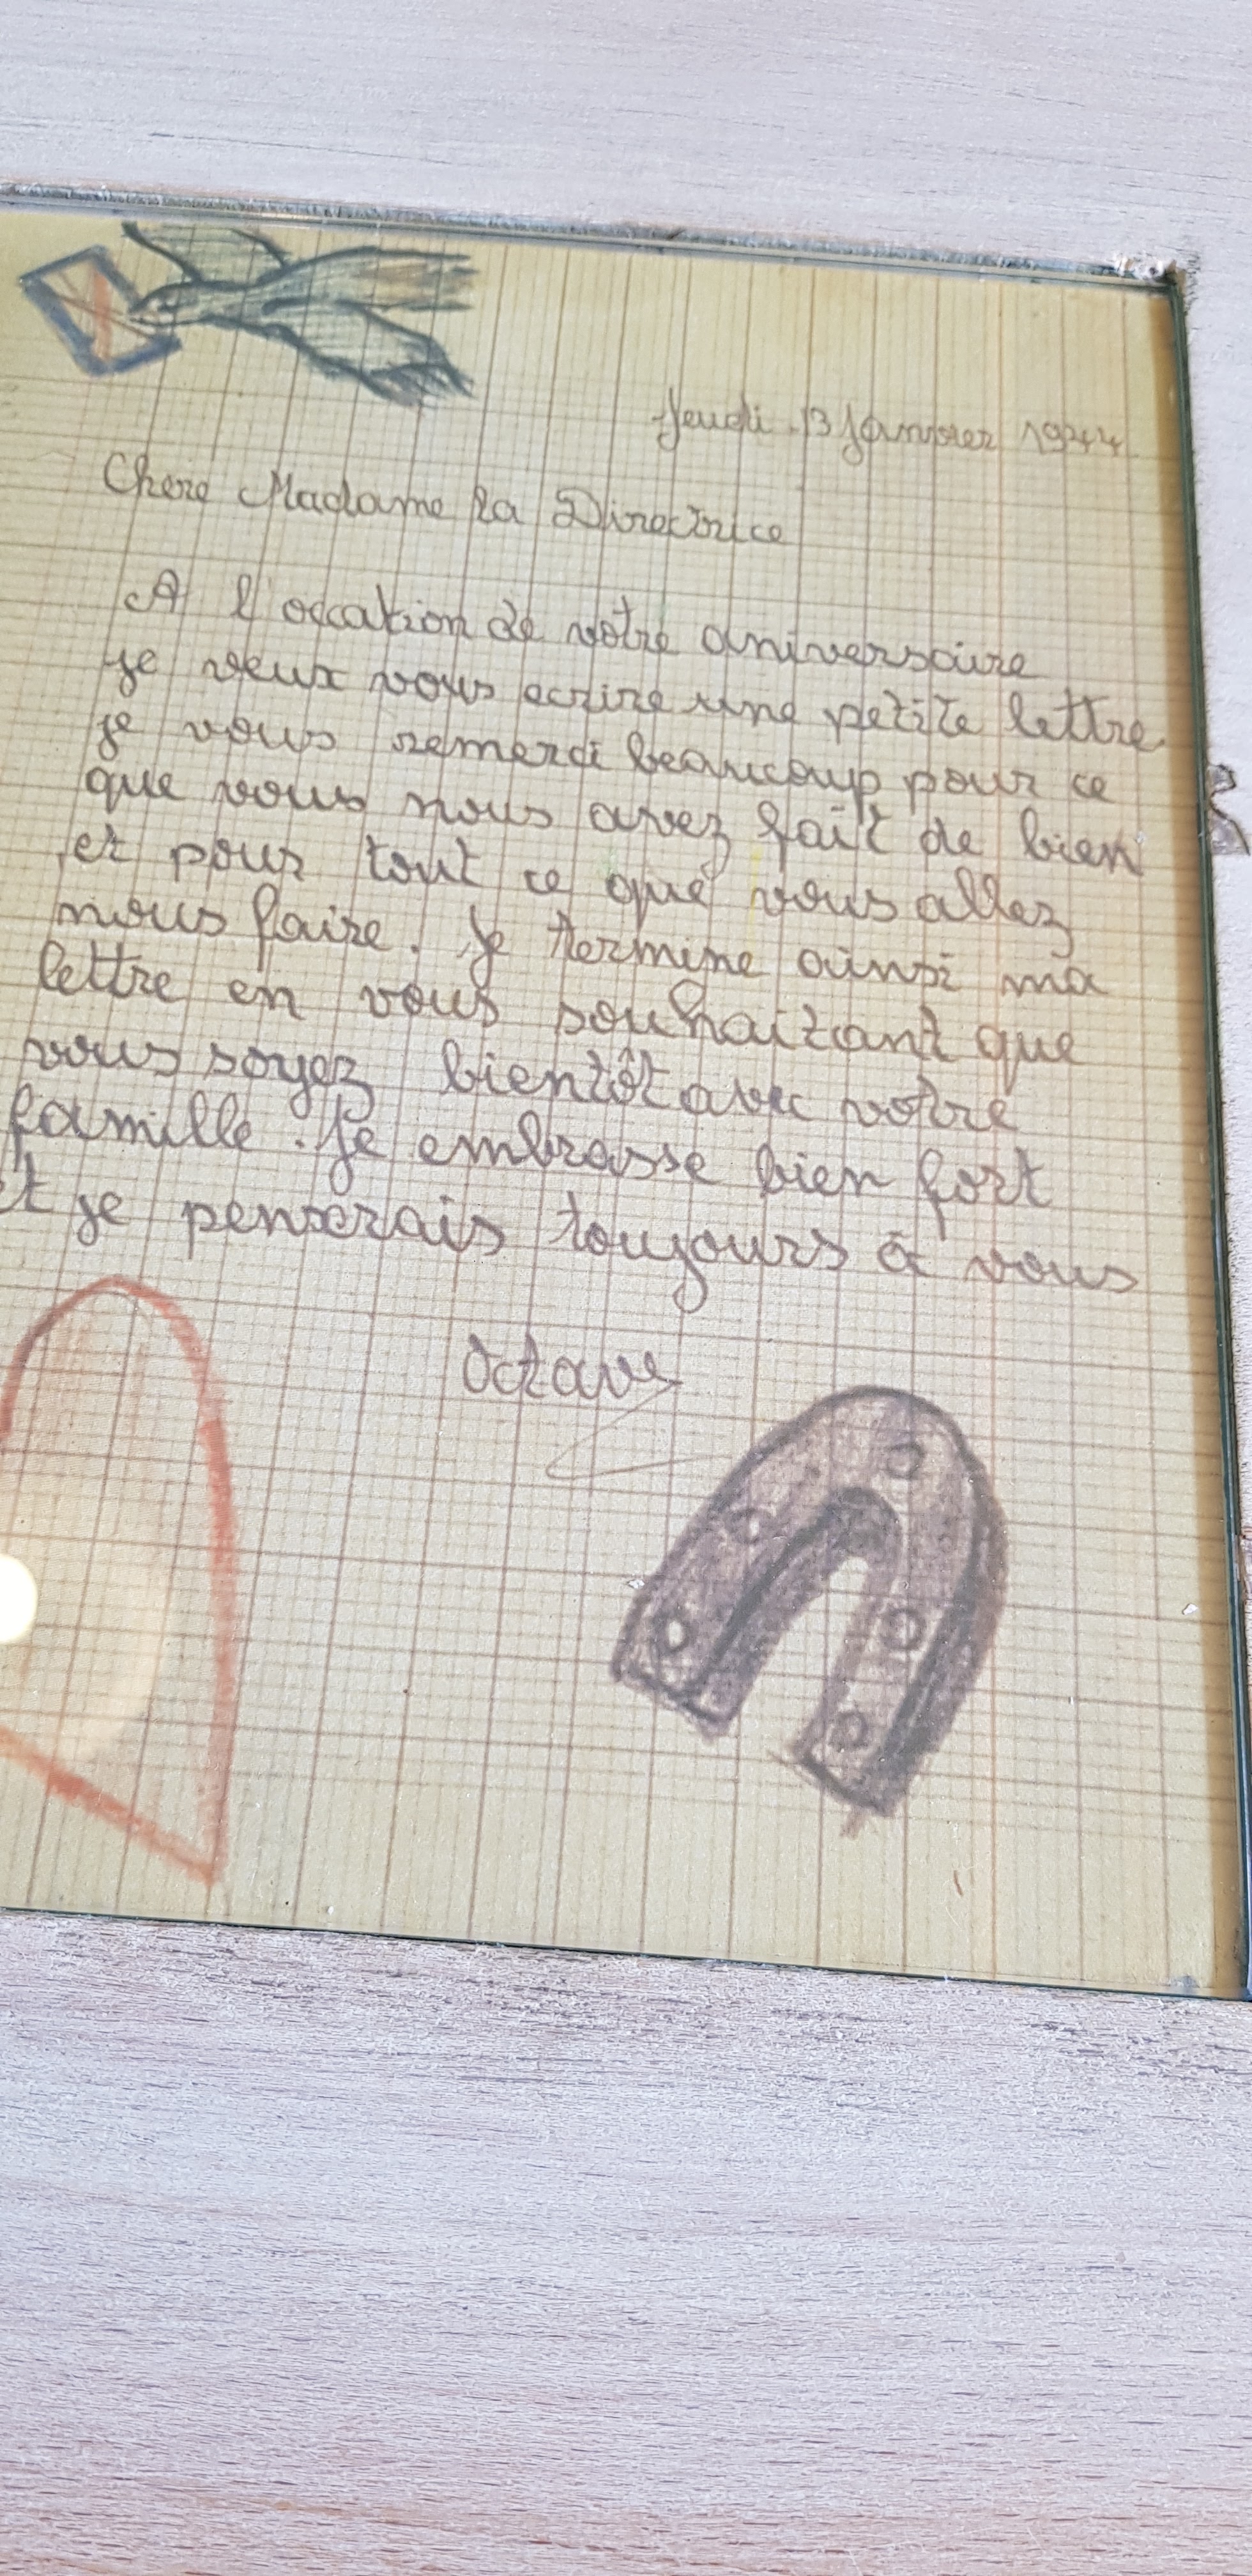 Jeudi 13 Janvier 1944
Chere Madame la Directrice
A l'occation de votre aniversaire
je veux vous ecrire une petite lettre
je vous remerci beaucoup pour ce
que vous nous avez fait de bien
et pour tout ce que vous allez
nous faire. Je termine ainsi ma
lettre en vous souhaitant que
vous soyez bientôt avec votre
famille. Je embrasse bien fort
et je penserais toujours à vous
Octave